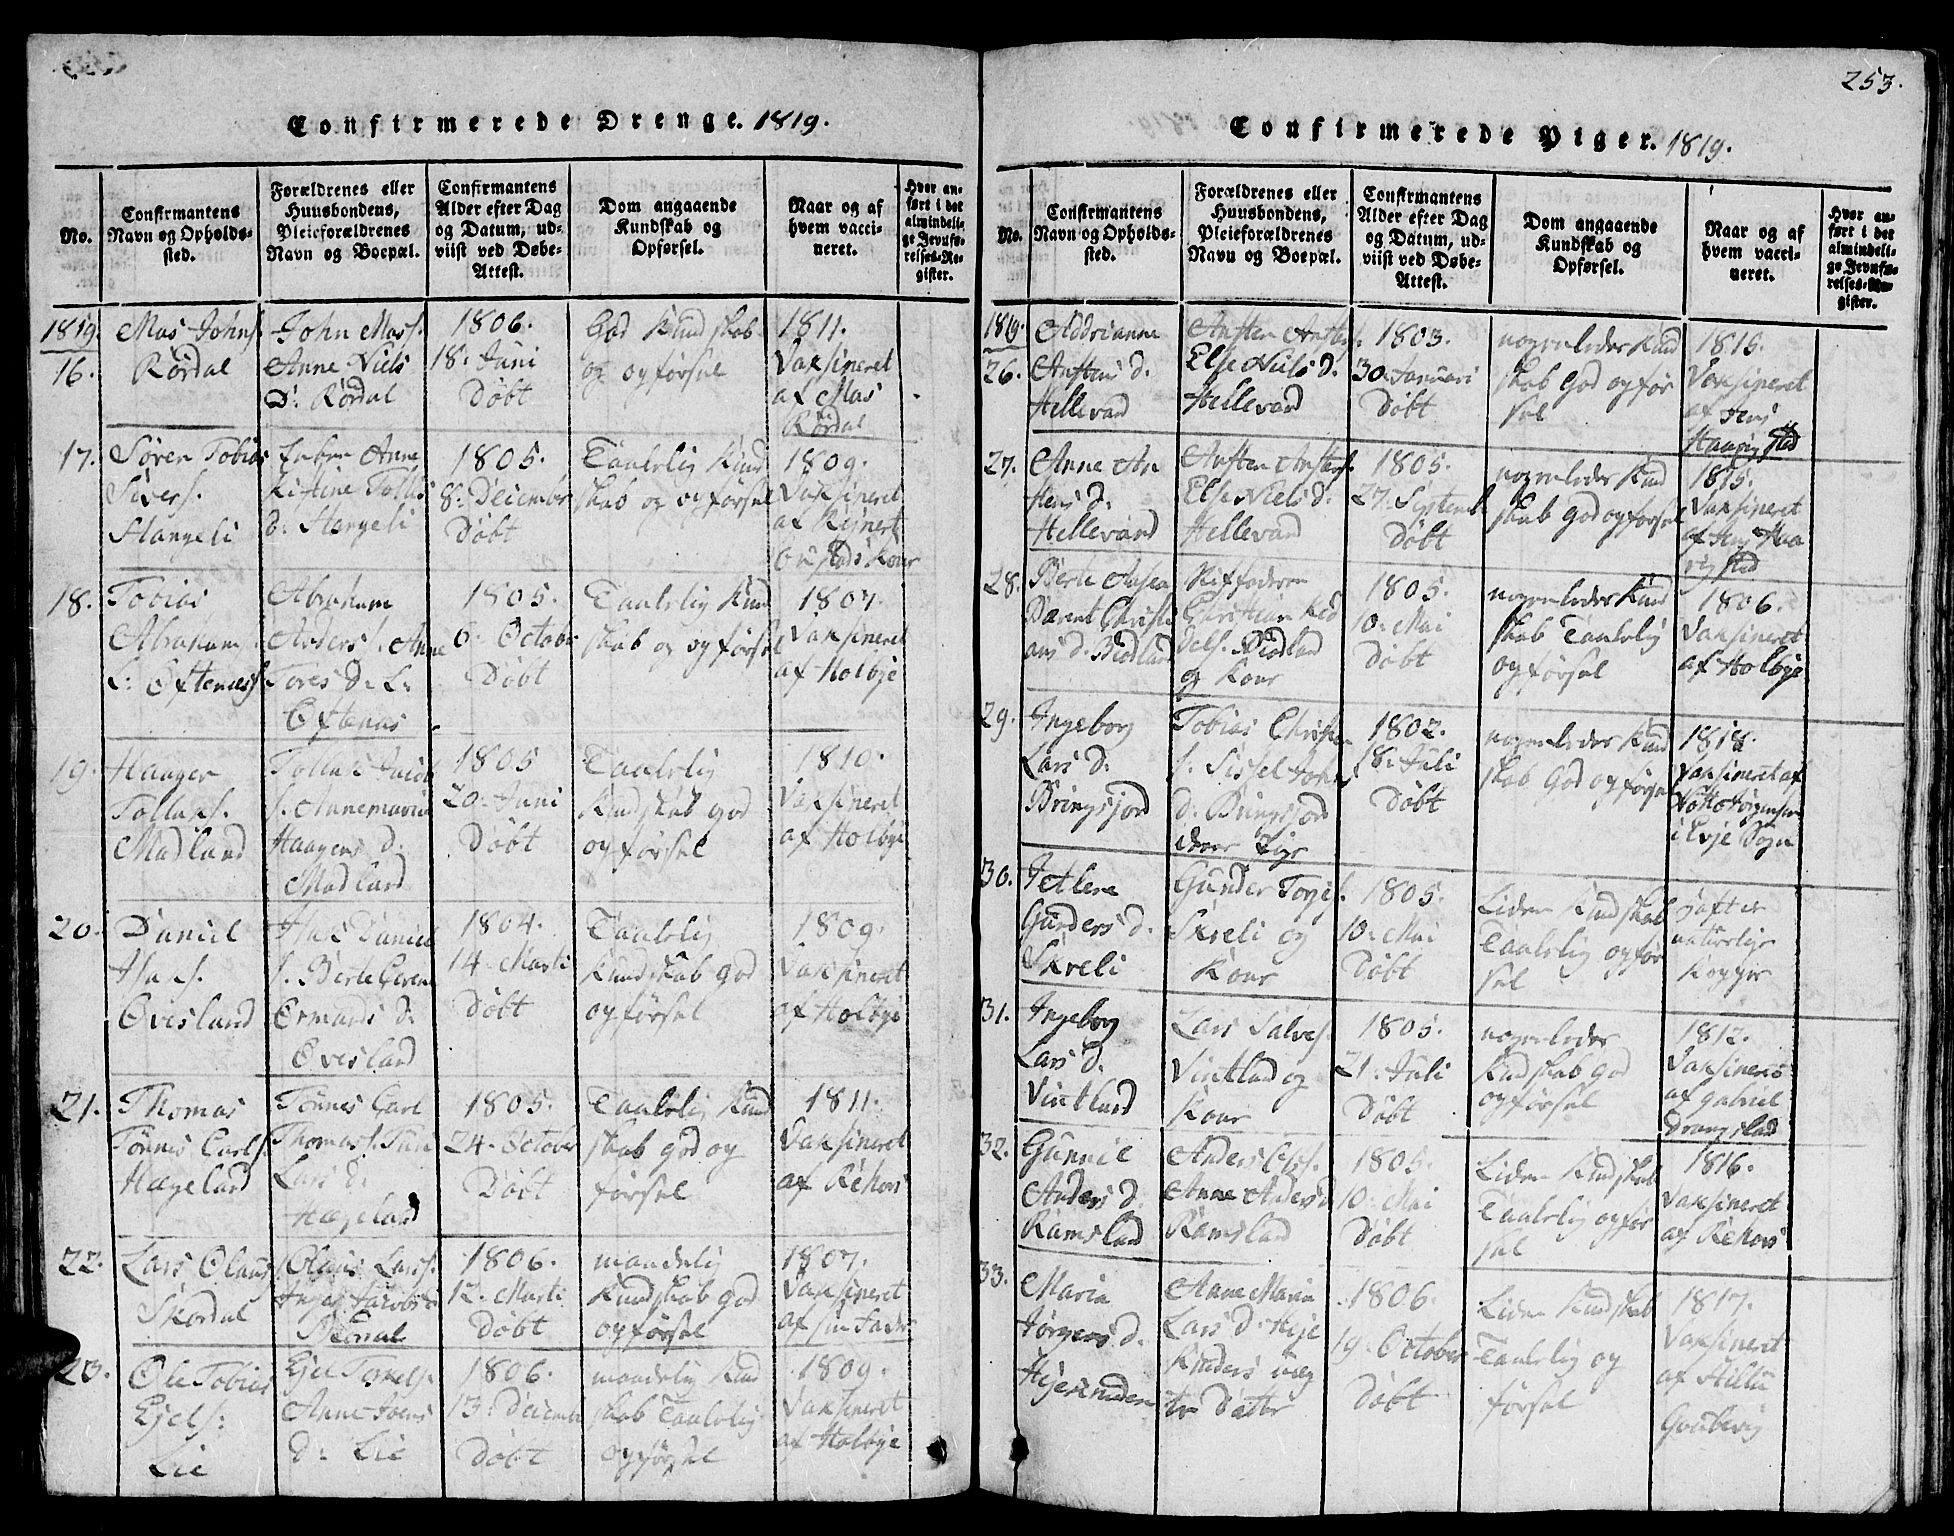 Confirmerede Drenge. 1819.
No.
Confirmantens
Navn og Opholds-
sted.
Forældrenes eller
Huusbondens,
Pleieforældrenes
Navn og Boepæl.
Confirmantens
Alder efter Dag
og Datum, ud-
viist ved Døbe-
Attest.
Dom angaaende
Kundskab og
Opførsel.
Naar og af
hvem vacci-
neret.
Hvor an-
ført i det
almindeli-
ge Jevnfø-
relses-Re-
gister.
1819.
16.
Mas Johns.
Rördal
John Mass.
Anne Niels
D: Rördal
1806.
18. Juni
Döbt
God Kundskab
og opförsel
1811.
Vaksineret
af Mas
Rördal
17.
Sören Tobias
Sivers.
Hangeli
Anne
Kistine Tollis
d: Hangeli
1805.
8. Deicember
Döbt
Taalelig Kund
skab og opförsel
1809.
Vaksineret
af Reinert
18.
Tobias
Abraham
L: Oftenes
Abraham
Anders s. Anne
Tores D. L:
Oftenes
1805.
6. October
Döbt
Taalelig Kund
skab og opförsel
1807.
Vaksineret
af Holbye
19.
Haagen
Tollaks.
Madland
Tollak Jacob
s. Annemaria
Haagens D.
Madland
1805
20. Juni
Döbt
Taalelig
Kundskab god
opförsel
1810.
Vaksineret
af Holbye
20.
Daniel
Isaks.
Övesland
Isak Daniel
s. Berte
D:
Övesland
1804.
14. Marti
Döbt
Taalelig
Kundskab god
opförsel
1809.
Vaksineret
af Holbye
21.
Thomas
Tönnes Carls.
Hægeland
Tönnes Carl
Thomas s.
Lars D:
Hægeland
1805.
24. October
Döbt
Taalelig Kund
skab god op
försel
1811.
Vaksineret
af Rehors
22.
Lars Olaus
Skordal
Olaus Larss.
Skordal
1806.
12. Marti
Döbt
maadelig
Kundskab god
opförsel
1807.
Vaksineret
af sin Fader
23.
Ole Tobias
Ejels:
Lie
Ejel
Anne Joens
D: Lie
1806.
13. Deicember
Döbt
maadelig Kund
skab Taalelig
opförsel
1809.
Vaksineret
af Holbye
253.
Confirmerede Piger. 1819.
No.
Confirmantens
Navn og Opholds-
sted.
Forældrenes eller
Huusbondens,
Pleieforældrenes
Navn og Boepæl.
Confirmantens
Alder efter Dag
og Datum, ud-
viist ved Døbe-
Attest.
Dom angaaende
Kundskab og
Opførsel.
Naar og af
hvem vacci-
neret.
Hvor an-
ført i det
almindeli-
ge Jevnfø-
relses-Re-
gister.
1819.
26.
Addrianne
Anstens d.
Hellevard
Ansten Anstens.
Else Niels d.
Hellevard
1803.
30. Januari
Döbt
nogenledes Kund
skab God opför
sel
1815.
Vaksineret
af Jens
Haarigsted
27.
Anne An
stens d.
Hellevard
Ansten Anstens.
Else Niels d.
Hellevard
1805.
27. Septemb
Döbt
nogenledes Kund
skab God opförsel
1815.
Vaksineret
af Jens Haa
rigsted
28.
Berte
Christi
ans d. Birkland
Stiffaderen
Christian
og Kone
1805.
10. Mai
Döbt
nogenledes Kund
skab Taalelig
opförsel
1806.
Vaksineret
af Holbye
29.
Ingeborg
Lars D.
Bringsjord
Tobias Christen
s. Sissel Johns
d. Bringsjord
deres Pige
1802.
18. Juli
Döbt
nogenledes Kund
skab God opförsel
1818.
Vaksineret af
Notto Jörgensen
i Evje Sogn
30.
Jetlene
Gunders d.
Skreli
Gunder Torje s.
Skreli og
Kone
1805.
10. Mai
Döbt
Liden Kundskab
Taalelig opför
sel
haft de
naturlige
Kopper
31.
Ingeborg
Lars d.
Vintland
Lars Salves.
Vintland og
Kone
1805.
21. Juli
Döbt
nogenledes
Kundskab God
opförsel
1812.
Vaksineret
af Gabriel
Drangsland
32.
Gunnil
Anders D.
Ramsland
Anders
Anne Anders d
Ramsland
1805.
10. Mai
Döbt
Liden Kundskab
Taalelig opför
sel
1816.
Vaksineret
af Rehors
33.
Maria
Jörgens d.
Anne Maria
Lars D.
Datter
1806.
19. October
Döbt
Liden Kundskab
Taalelig op
försel
1817.
Vaksineret
af